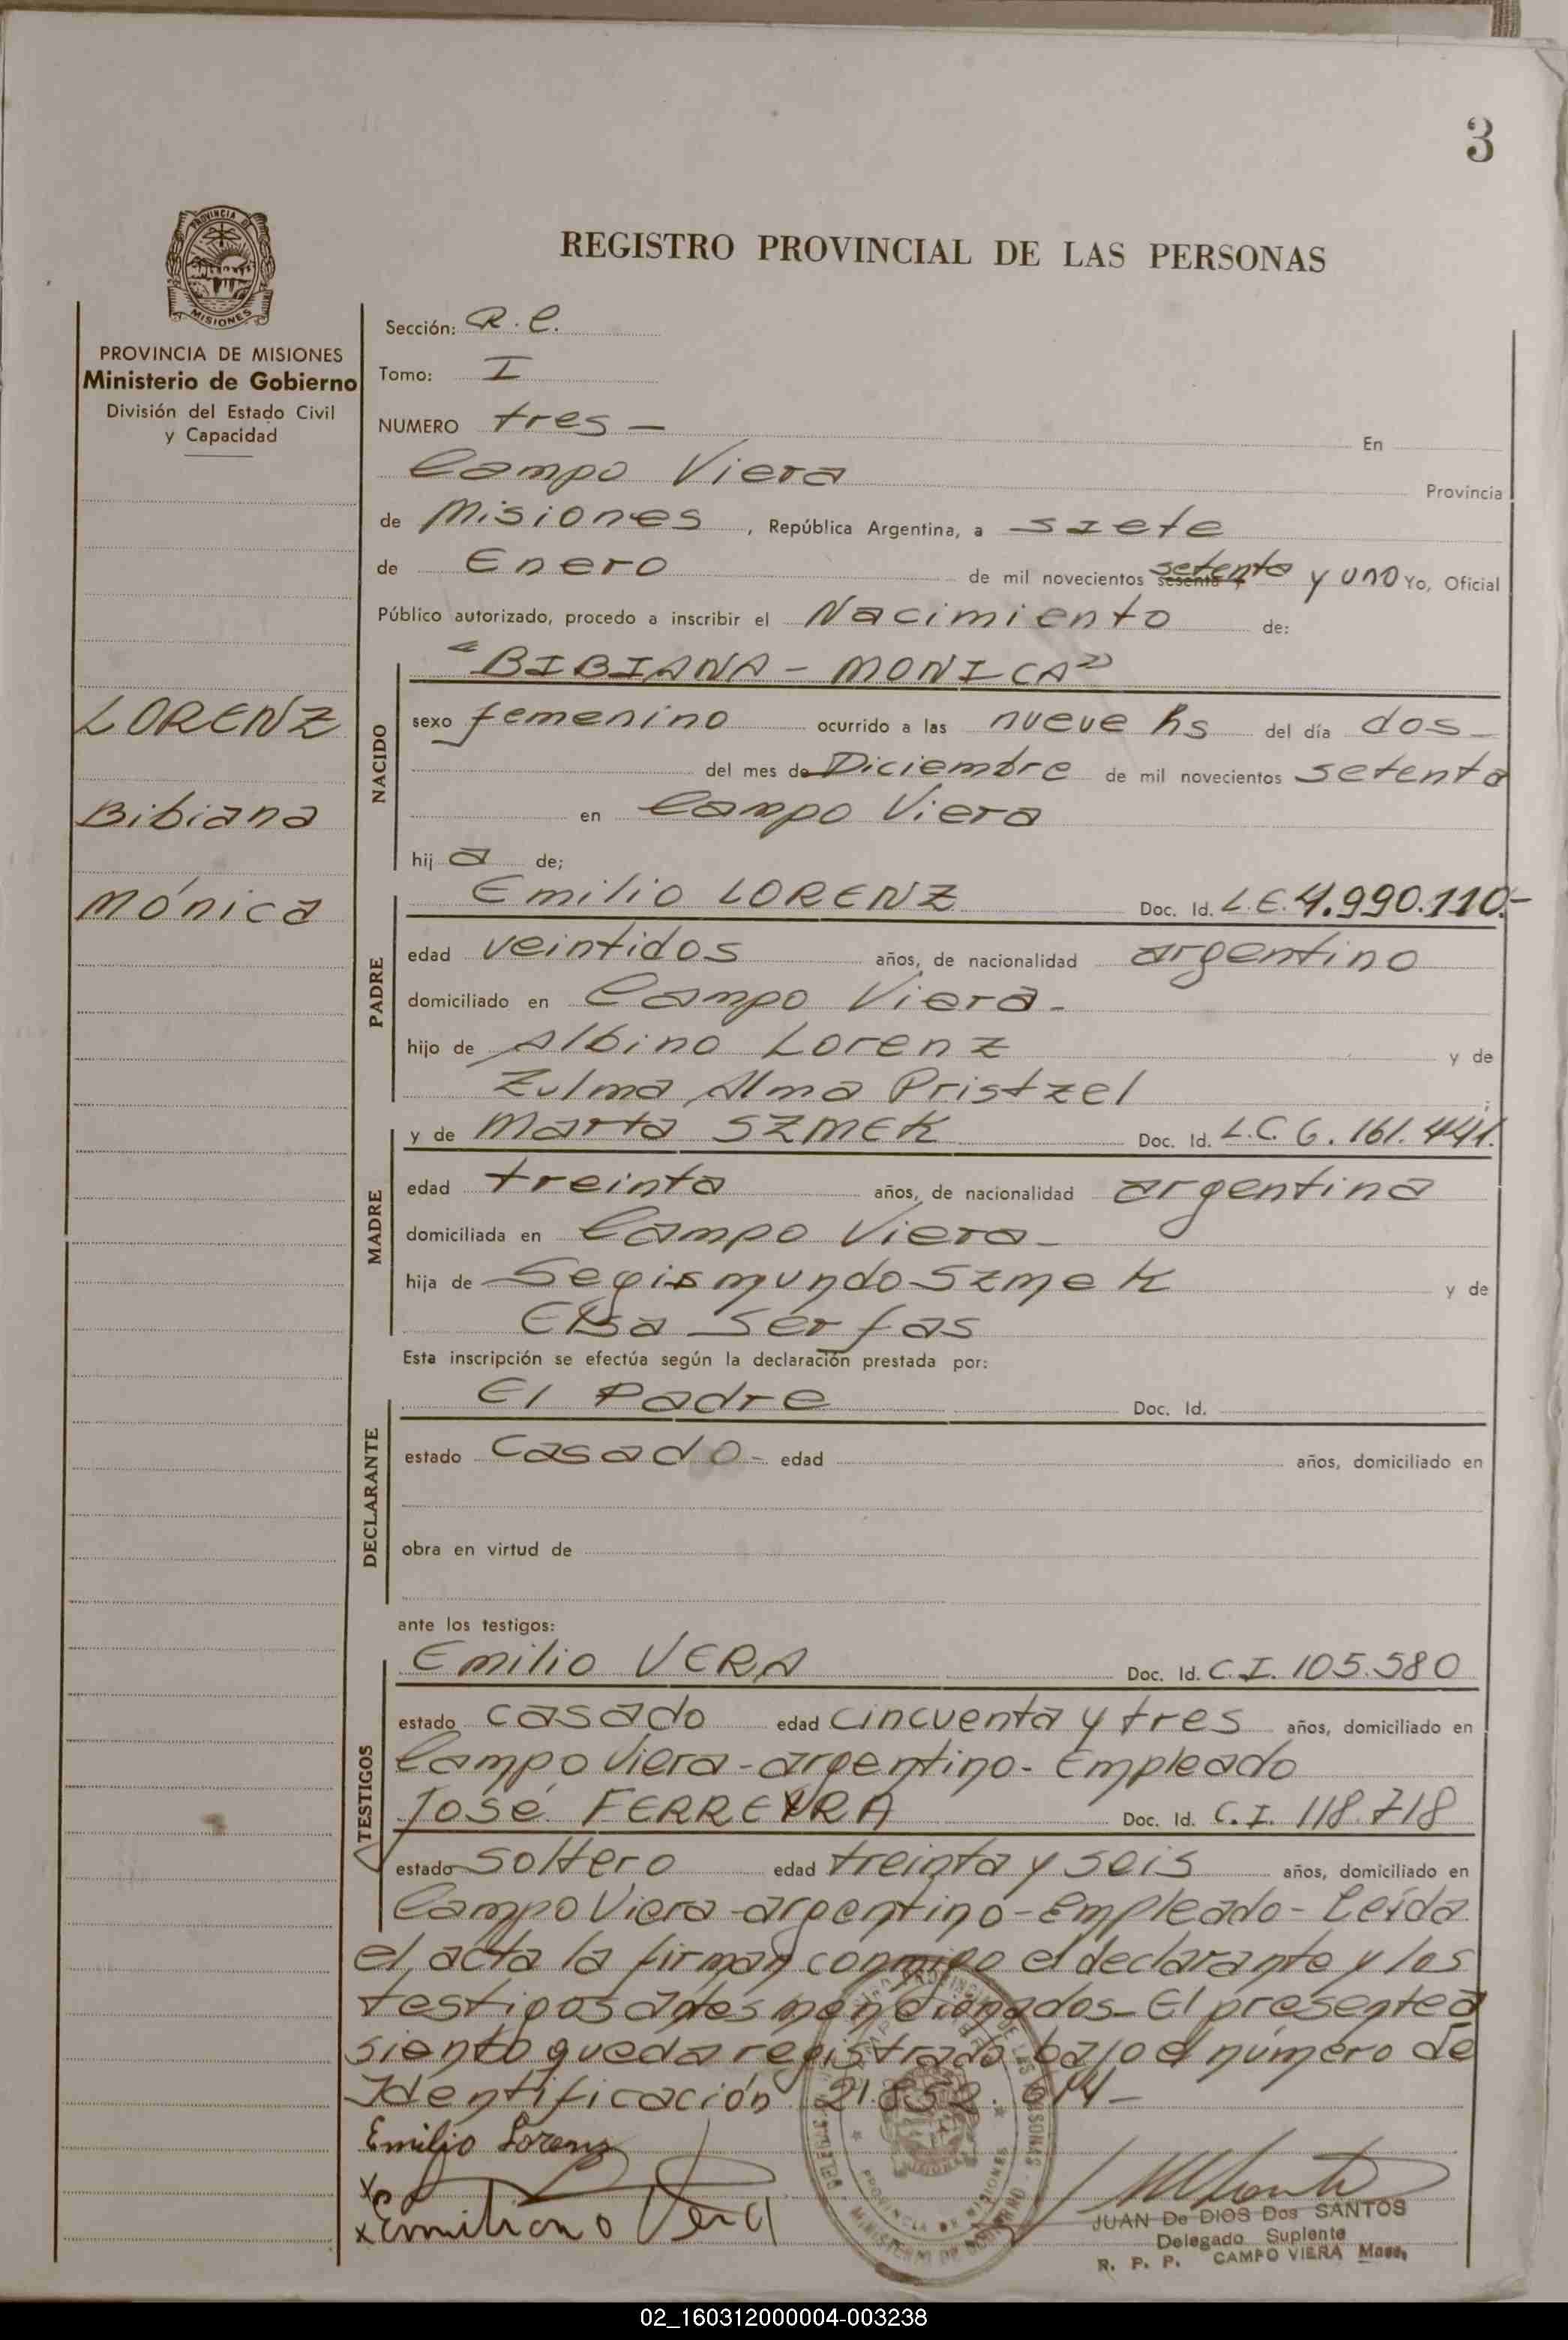 3
PROVINCIA DE
MISIONES
REGISTRO PROVINCIAL DE LAS PERSONAS
PROVINCIA DE MISIONES
Ministerio de Gobierno
División del Estado Civil
y Capacidad
LORENZ
Bibiana
Mónica
Sección: R.C.
Tomo: I
NUMERO tres — En
Campo Viera Provincia
de Misiones, República Argentina, a siete
de Enero de mil novecientos sesenta y setenta y uno Yo, Oficial
Público autorizado, procedo a inscribir el Nacimiento de:
"BIBIANA - MONICA"
NACIDO
sexo femenino ocurrido a las nueve hs del día dos -
del mes de Diciembre de mil novecientos setenta
en Campo Viera
hij a de;
PADRE
Emilio LORENZ Doc. Id. L.E. 4.990.110.-
edad veintidos años, de nacionalidad argentino
domiciliado en Campo Viera -
hijo de Albino Lorenz y de
Zulma Alma Pristzel ;
MADRE
y de Marta SZMEK Doc. Id. L.C. 6.161.441.
edad treinta años, de nacionalidad argentina
domiciliada en Campo Viera -
hija de Segismundo Szmek y de
Elsa Serfas
Esta inscripción se efectúa según la declaración prestada por:
DECLARANTE
El Padre Doc. Id.
estado casado - edad años, domiciliado en
obra en virtud de
ante los testigos:
TESTIGOS
Emilio VERA Doc. Id. C.I. 105.580
estado casado edad cincuenta y tres años, domiciliado en
Campo Viera - argentino - Empleado
José FERREYRA Doc. Id. C.I. 118.718
estado soltero edad treinta y seis años, domiciliado en
Campo Viera - argentino - Empleado - Leída
el acta la firman conmigo el declarante y los
testigos antes mencionados - El presente a
siento queda registrado bajo el número de
Identificación 21.852.614 -
Emilio Lorenz
x
x Emiliano Vera
JUAN De DIOS Dos SANTOS
Delegado Suplente
R. P. P. CAMPO VIERA Mnes.
02_160312000004-003238